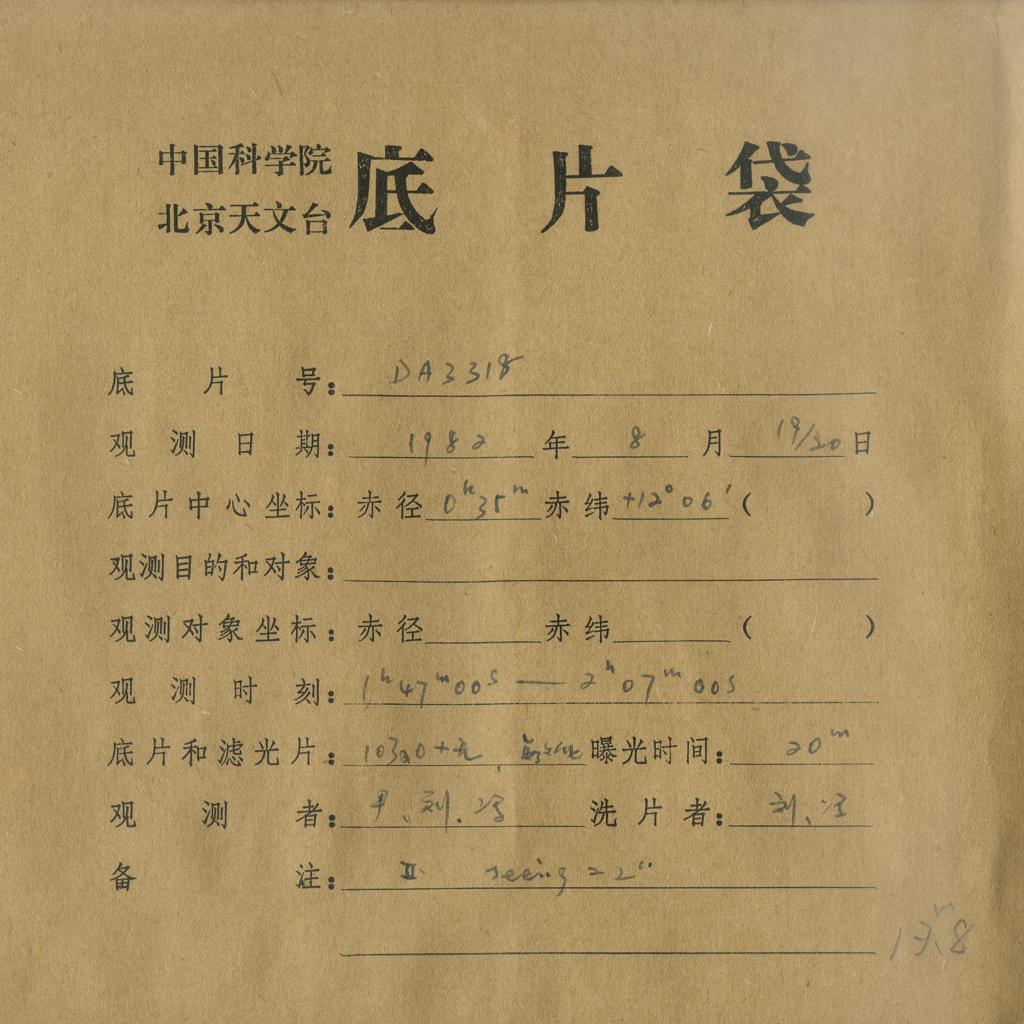 中国科学院
北京天文台
底片袋
底片号：DA3318
观测日期：1982年8月19/20日
底片中心坐标：赤径0ʰ35ᵐ赤纬+12°06′（ ）
观测目的和对象：
观测对象坐标：赤径 赤纬 （ ）
观测时刻：1ʰ47ᵐ00ˢ — 2ʰ07ᵐ00ˢ
底片和滤光片：103aO+无、敏化 曝光时间：20ᵐ
观测者：尹、刘、 洗片者：刘、
备注：II. seeing = 2″